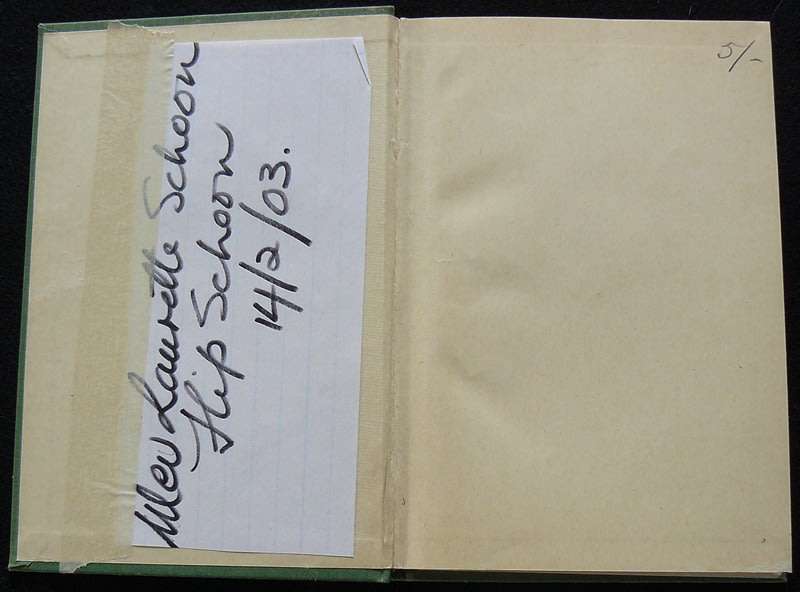 Mev Laurette Schoon
Flip Schoon
14/2/03.
5/-